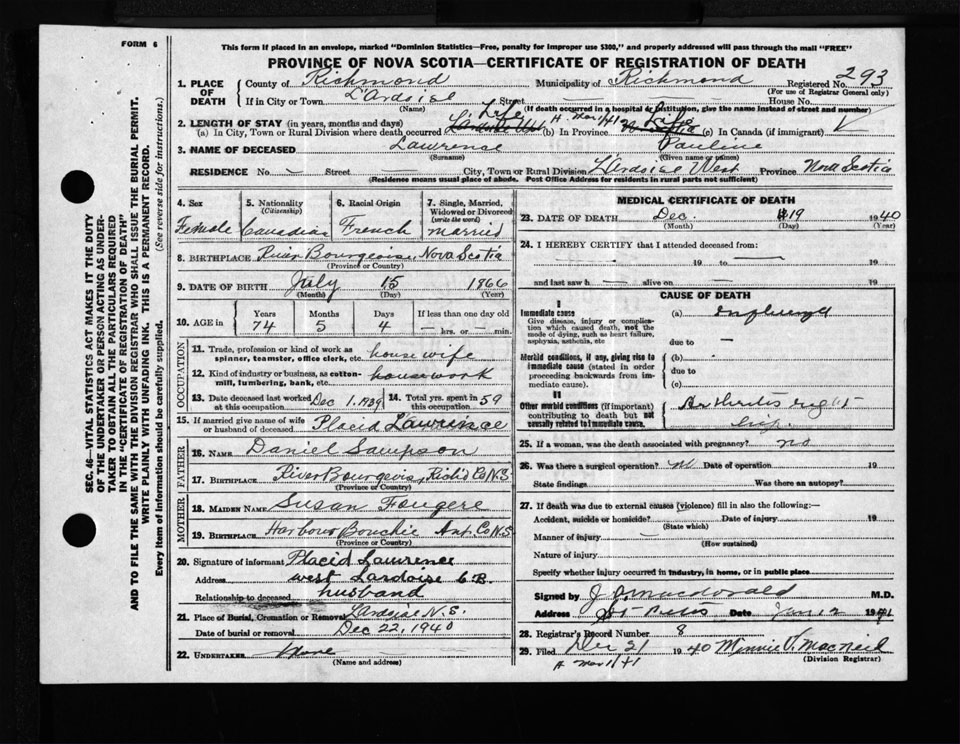 FORM 6
This form if placed in an envelope, marked "Dominion Statistics—Free, penalty for improper use $300," and properly addressed will pass through the mail "FREE"
PROVINCE OF NOVA SCOTIA—CERTIFICATE OF REGISTRATION OF DEATH
1. PLACE OF DEATH County of Richmond Municipality of Richmond Registered No. 293
(For use of Registrar General only)
If in City or Town L'Ardoise Street — House No. —
(Name) (If death occurred in a hospital or institution, give the name instead of street and number)
A. Mar 1/41
2. LENGTH OF STAY (in years, months and days)
(a) In City, Town or Rural Division where death occurred Life (b) In Province Life (c) In Canada (if immigrant)
3. NAME OF DECEASED Lawrence Pauline
(Surname) (Given name or names)
RESIDENCE No. — Street — City, Town or Rural Division L'Ardoise West Province Nova Scotia
(Residence means usual place of abode. Post Office Address for residents in rural parts not sufficient)
4. Sex 5. Nationality (Citizenship) 6. Racial Origin 7. Single, Married, Widowed or Divorced (write the word)
Female Canadian French married
8. BIRTHPLACE River Bourgeoise, Nova Scotia
(Province or Country)
9. DATE OF BIRTH July 15 1866
(Month) (Day) (Year)
10. AGE in Years Months Days If less than one day old
74 5 4 — hrs. or — min.
OCCUPATION
11. Trade, profession or kind of work as spinner, teamster, office clerk, etc. house wife
12. Kind of industry or business, as cotton-mill, lumbering, bank, etc. housework
13. Date deceased last worked at this occupation Dec 1. 1939 14. Total yrs. spent in this occupation 59
15. If married give name of wife or husband of deceased Placid Lawrence
FATHER
16. NAME Daniel Sampson
17. BIRTHPLACE River Bourgeois, Rich'd Co N.S
(Province or Country)
MOTHER
18. MAIDEN NAME Susan Fougere
19. BIRTHPLACE Harbour Bouchie Ant. Co N.S
(Province or Country)
20. Signature of informant Placid Lawrence
Address west Lardoise C.B.
Relationship to deceased husband
21. Place of Burial, Cremation or Removal Lardoise N.S.
Date of burial or removal Dec 22, 1940
22. UNDERTAKER None
(Name and address)
MEDICAL CERTIFICATE OF DEATH
23. DATE OF DEATH Dec. 19 1940
(Month) (Day) (Year)
24. I HEREBY CERTIFY that I attended deceased from:
— 19 to — 19
and last saw h — alive on 19
CAUSE OF DEATH
I
Immediate cause
Give disease, injury or complication which caused death, not the mode of dying, such as heart failure, asphyxia, asthenia, etc
(a)
due to —
Morbid conditions, if any, giving rise to immediate cause (stated in order proceeding backwards from immediate cause).
(b) —
due to
(c)
II
Other morbid conditions (if important) contributing to death but not causally related to immediate cause.
Arthritis right hip.
25. If a woman, was the death associated with pregnancy? no
26. Was there a surgical operation? Date of operation 19
State findings Was there an autopsy?
27. If death was due to external causes (violence) fill in also the following:—
Accident, suicide or homicide? Date of injury 19
(State which)
Manner of injury —
(How sustained)
Nature of injury
Specify whether injury occurred in industry, in home, or in public place
Signed by J. Macdonald M.D.
Address St Peters Date Jan 12 1941
28. Registrar's Record Number 8
29. Filed Dec 21 1940 Minnie V. MacNeil
(Division Registrar)
A Mar 1/41
SEC. 46—VITAL STATISTICS ACT MAKES IT THE DUTY
OF THE UNDERTAKER OR PERSON ACTING AS UNDER-
TAKER TO OBTAIN ALL THE PARTICULARS REQUIRED
IN THE "CERTIFICATE OF REGISTRATION OF DEATH"
AND TO FILE THE SAME WITH THE DIVISION REGISTRAR WHO SHALL ISSUE THE BURIAL PERMIT.
WRITE PLAINLY WITH UNFADING INK. THIS IS A PERMANENT RECORD.
Every item of information should be carefully supplied. (See reverse side for instructions.)